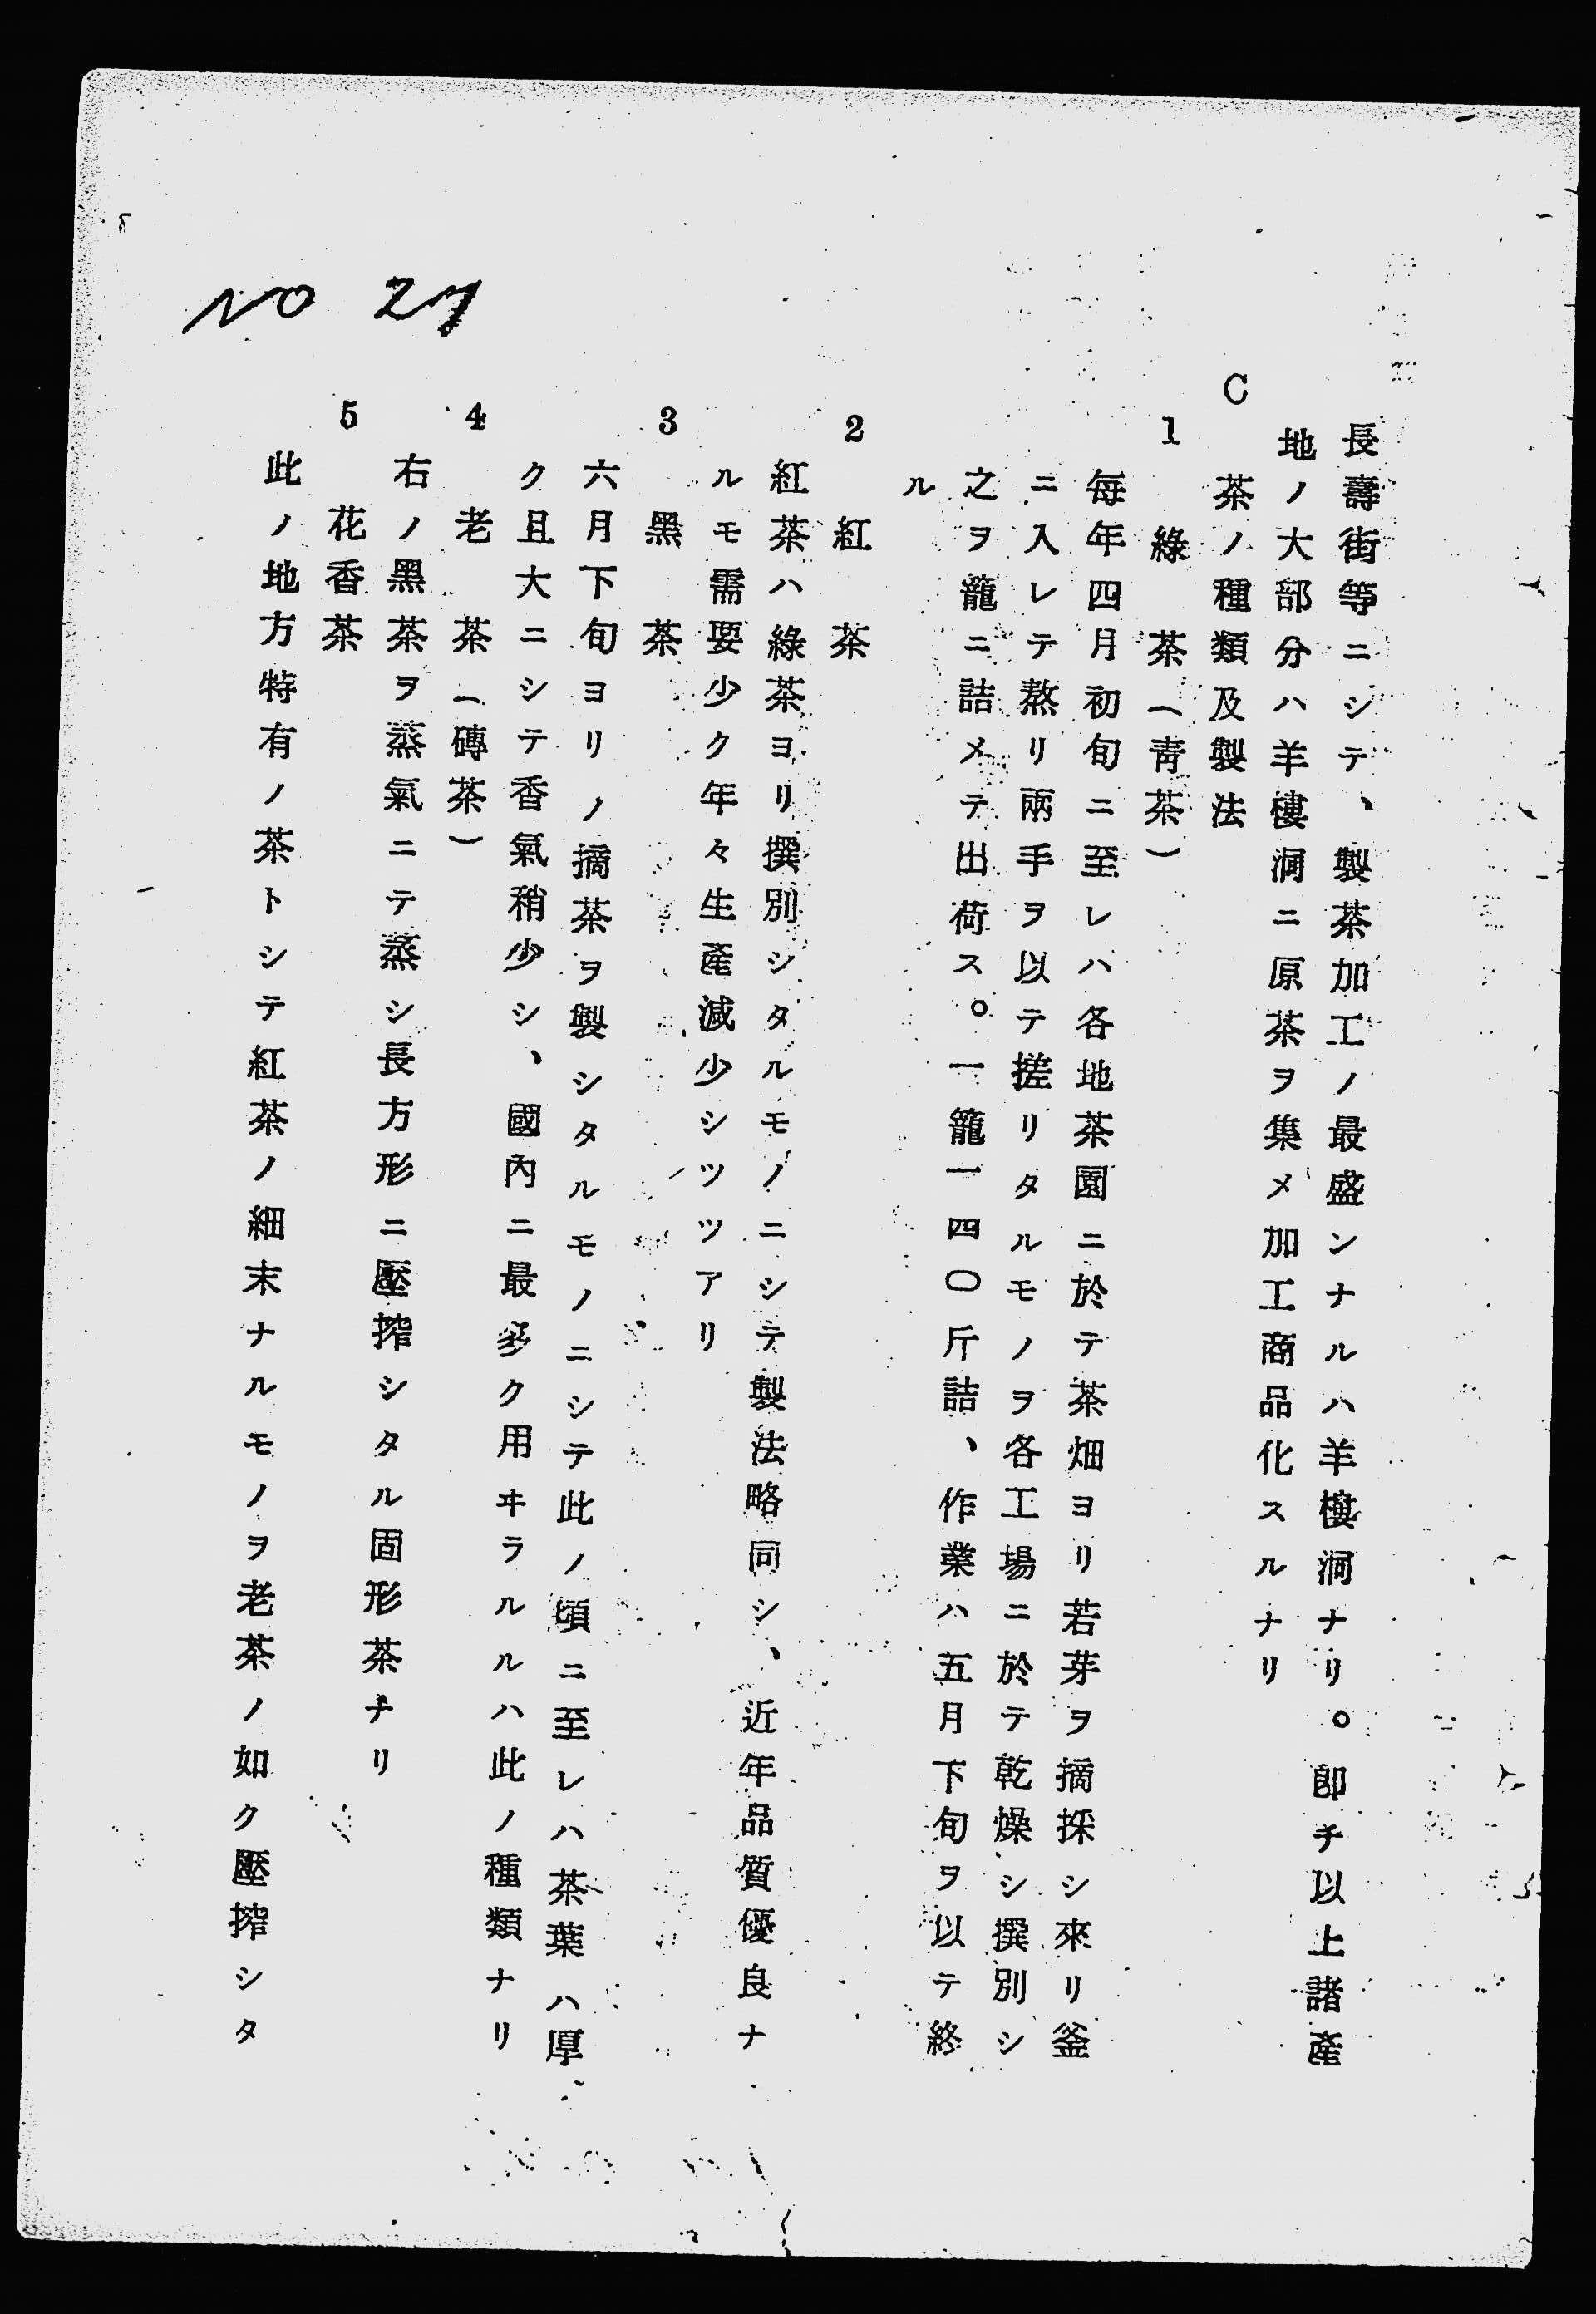 NO 27
長壽街等ニシテ、製茶加工ノ最盛ンナルハ羊樓洞ナリ。卽チ以上諸產
地ノ大部分ハ羊樓洞ニ原茶ヲ集メ加工商品化スルナリ
C 茶ノ種類及製法
1 綠茶(靑茶)
每年四月初旬ニ至レハ各地茶園ニ於テ茶畑ヨリ若芽ヲ摘採シ來リ釜
ニ入レテ熬リ兩手ヲ以テ搓リタルモノヲ各工場ニ於テ乾燥シ撰別シ
之ヲ籠ニ詰メテ出荷ス。一籠一四〇斤詰、作業ハ五月下旬ヲ以テ終
ル
2 紅茶
紅茶ハ綠茶ヨリ撰別シタルモノニシテ製法略同シ、近年品質優良ナ
ルモ需要少ク年々生產減少シツツアリ
3 黑茶
六月下旬ヨリノ摘茶ヲ製シタルモノニシテ此ノ頃ニ至レハ茶葉ハ厚
ク且大ニシテ香氣稍少シ、國內ニ最多ク用ヰラルルハ此ノ種類ナリ
4 老茶(磚茶)
右ノ黑茶ヲ蒸氣ニテ蒸シ長方形ニ壓搾シタル固形茶ナリ
5 花香茶
此ノ地方特有ノ茶トシテ紅茶ノ細末ナルモノヲ老茶ノ如ク壓搾シタ